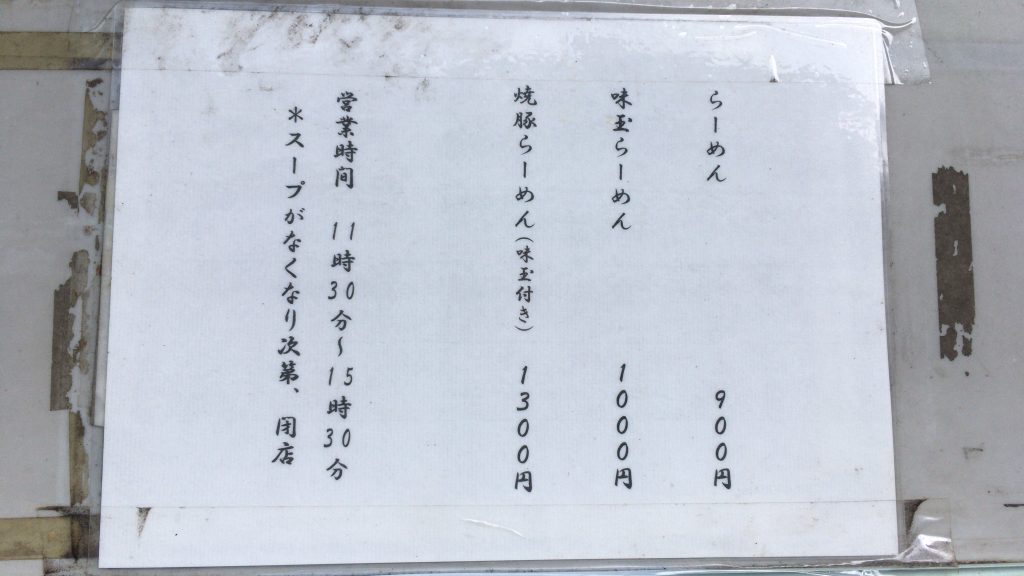 らーめん 900円
味玉らーめん 1000円
焼豚らーめん(味玉付き) 1300円
営業時間 11時30分〜15時30分
*スープがなくなり次第、閉店